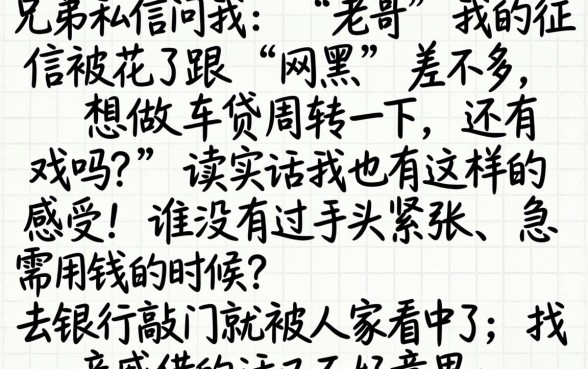 兄弟私信问我：“老哥”我的征
信被花了跟“网黑”差不多，
想做车贷周转一下，还有
戏吗？”读实话我也有这样的
感受！谁没有过手头紧张、急
需用钱的时候？
去银行敲门就被人家看中了；找